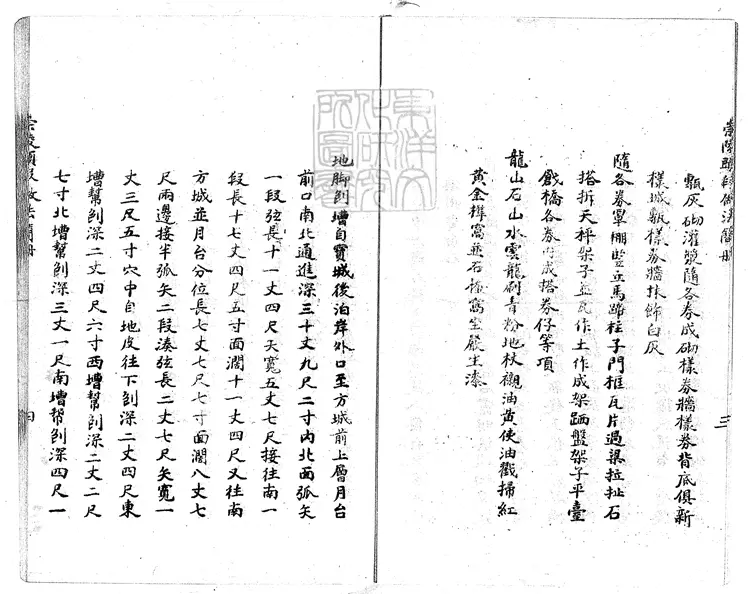 崇陵
甎灰砌灌漿隨各券成砌樣券牆樣券背底俱新
樣城甎樣券牆抹飾白灰
隨各券罩棚豎立馬蹄柱子門框瓦片過梁拉扯石
搭拆天秤架子並瓦作土作成架跴盤架子平臺
戧橋各券內成搭券仔等項
龍山石山水雲龍刷青粉地杖襯油黃使油戳掃紅
黃金樺窩並石榛窩坐嚴生漆
三
地脚刨槽自寶城後泊岸外口至方城前上層月台
前口南北通進深三十丈九尺二寸內北面弧矢
一段弦長十一丈四尺矢寬五丈七尺接往南一
段長十七丈四尺五寸面濶十一丈四尺又往南
方城並月台分位長七丈七尺七寸面濶八丈七
尺兩邊接半弧矢二段湊弦長二丈七尺矢寬一
丈三尺五寸穴中自地皮往下刨深二丈四尺東
槽幫刨深二丈四尺六寸西槽幫刨深二丈二尺
七寸北槽幫刨深三丈一尺南槽幫刨深四尺一
四